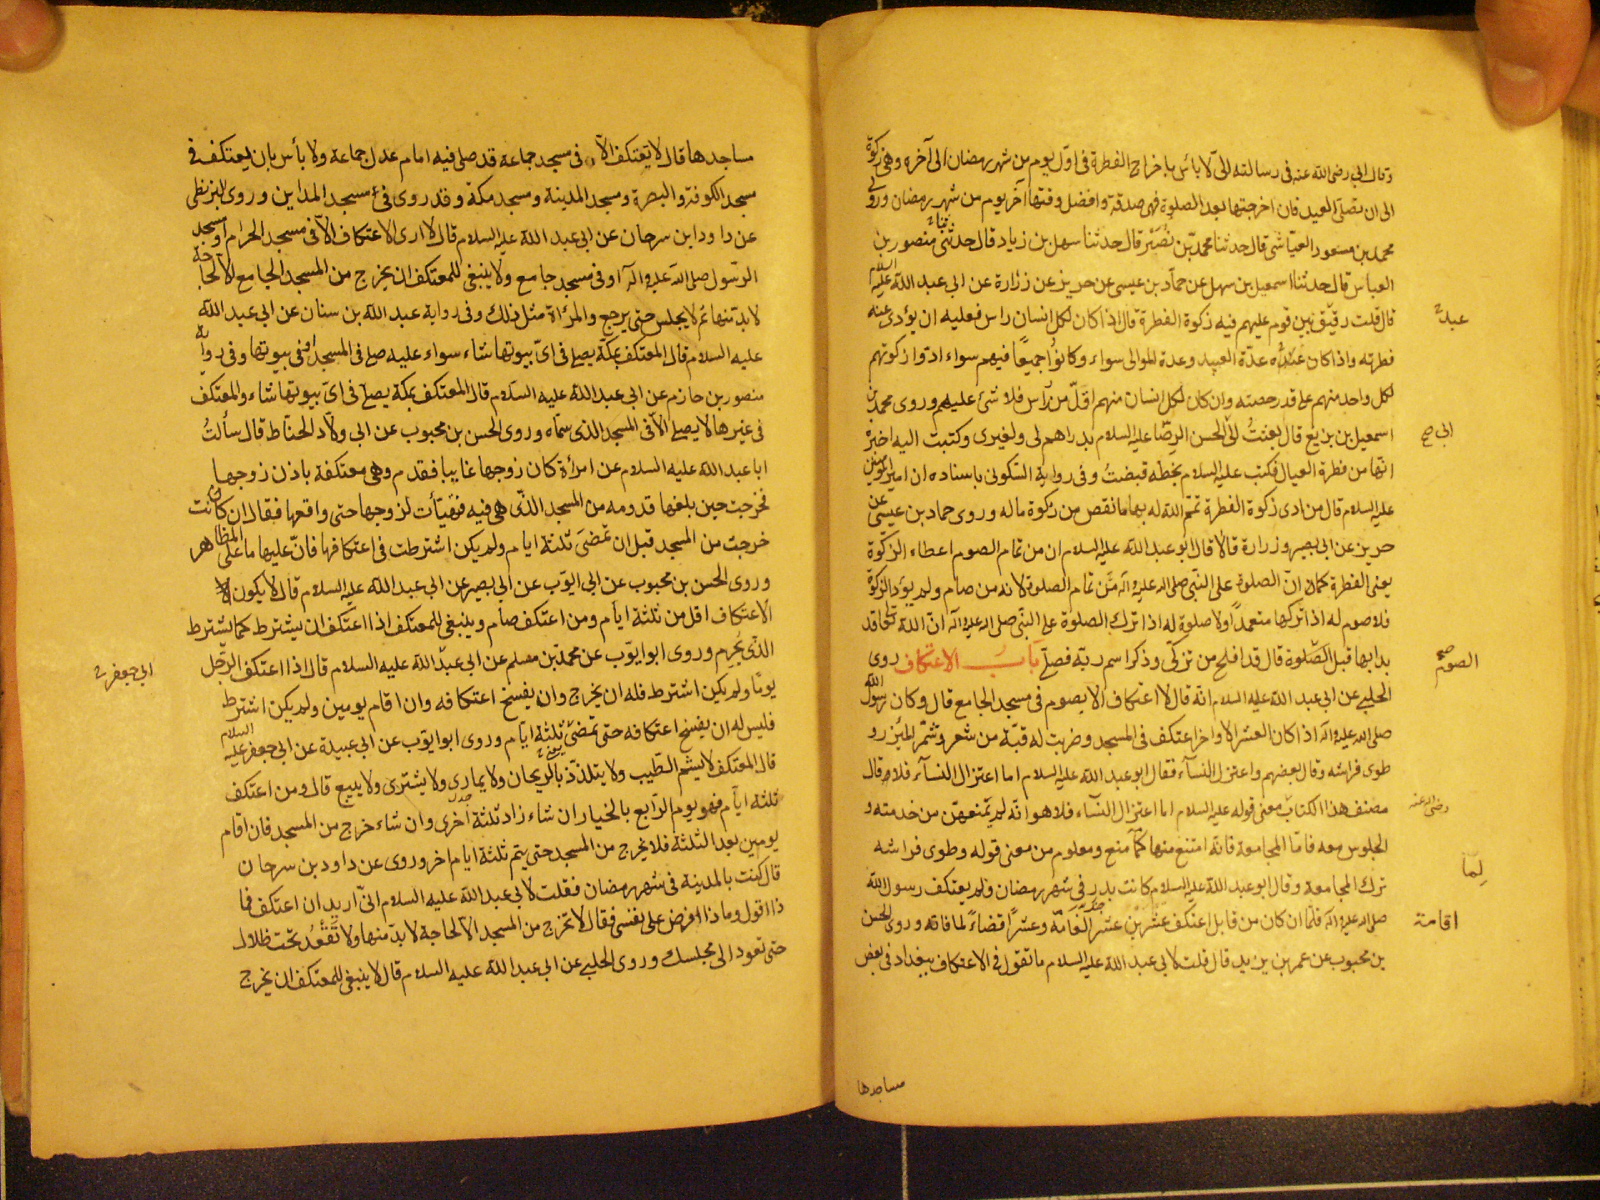 وقال ابي رضى الله عنه فى رسالته الىّ لا بأس باخراج الفطرة فى اوّل يوم من شهر رمضان الى آخره وهى زكوة
الى ان يصلّى العيد فان اخرجتها بعد الصلوة فهى صدقة وافضل وقتها آخر يوم من شهر رمضان وروى
محمد بن مسعود العيّاشى قال حدثنا محمد بن نُصَيْر قال حدثنا سهل بن زياد قال حدثنى منصور بن
العباس قال حدثنا اسمعيل بن سهل عن حمّاد بن عيسى عن حريز عن زرارة عن ابى عبد الله عليه السلام
قال قلت رقيق بين قوم عليهم فيه زكوة الفطرة قال اذا كان لكل انسان راس فعليه ان يؤدى عنه
فطرته واذا كان عدّة العبيد وعدة الموالى سواء وكانوا جميعًا فيهم سواء ادّوا زكوتهم
لكل واحد منهم على قدر حصته وان كان لكل انسان منهم اقلّ من رأس فلا شئ عليهم وروى محمد بن
اسمعيل بن بزيع قال بعثتُ الى ابى الحسن الرضا عليه السلام بدراهم لى ولغيرى وكتبت اليه اخبره
انّها من فطرة العيال فكتب عليه السلام بخطّه قبضتُ وفى رواية السّكونى باسناده ان امير المؤمنين
عليه السلام قال من ادى زكوة الفطرة تمّم الله له بها ما نقص من زكوة ماله وروى حماد بن عيسى عن
حريز عن ابى بصير وزرارة قالا قال ابو عبد الله عليه السلام ان من تمام الصوم اعطاء الزكوة
يعنى الفطرة كما ان الصلوة على النبى صلى الله عليه وآله من تمام الصلوة لانه من صام ولم يؤد الزكوة
فلا صوم له اذا تركها متعمدًا ولا صلوة له اذا ترك الصلوة على النبى صلى الله عليه وآله انّ الله تعالى قد
بدا بها قبل الصّلوة قال قد افلح من تزكّى وذكر اسم ربّه فصلّى باب الاعتكاف روى
الحلبى عن ابى عبد الله عليه السلام انّه قال لا اعتكاف الا بصوم فى مسجد الجامع قال وكان رسول الله
صلى الله عليه وآله اذا كان العشر الاواخر اعتكف فى المسجد وضربت له قبّة من شعر وشمّر المئزر و
طوى فراشه وقال بعضهم واعتزل النساء فقال ابو عبد الله عليه السلام اما اعتزال النساء فلا قال
مصنف هذا الكتاب معنى قوله عليه السلام اما اعتزال النساء فلا هو انّه لم يمنعهنّ من خدمته و
الجلوس معه فامّا المجامعة فانّه امتنع منها كما منع ومعلوم من معنى قوله وطوى فراشه
ترك المجامعة وقال ابو عبد الله عليه السلام كانت بدر فى شهر رمضان ولم يعتكف رسول الله
صلى الله عليه وآله فلمّا ان كان من قابل اعتكف عشرين عشرًا لعامه وعشرًا قضاءً لما فاته وروى الحسن
بن محبوب عن عمر بن يزيد قال قلت لابى عبد الله عليه السلام ما تقول فى الاعتكاف ببغداد فى بعض
مساجدها
الصوم
رضى الله عنه
لِما
اقامة
مساجدها قال لا يعتكف الّا فى مسجد جماعة قد صلى فيه امام عدل جماعة ولا بأس بان يعتكف فى
مسجد الكوفة والبصرة ومسجد المدينة ومسجد مكة وقد روى فى مسجد المداين وروى البزنطى
عن داود بن سرحان عن ابى عبد الله عليه السلام قال لا ارى الاعتكاف الّا فى مسجد الحرام او مسجد
الرّسول صلى الله عليه وآله او فى مسجد جامع ولا ينبغى للمعتكف ان يخرج من المسجد الجامع الا لحاجة
لا بد منها ثم لا يجلس حتى يرجع والمرأة مثل ذلك وفى رواية عبد الله بن سنان عن ابى عبد الله
عليه السلام قال المعتكف بمكة يصلى فى اىّ بيوتها شاء سواء عليه صلى فى المسجد او فى بيوتها وفى رواية
منصور بن حازم عن ابى عبد الله عليه السلام قال المعتكف بمكة يصلى فى اىّ بيوتها شاء والمعتكف
فى غيرها لا يصلى الّا فى المسجد الذى سمّاه وروى الحسن بن محبوب عن ابى ولّاد الحنّاط قال سألتُ
ابا عبد الله عليه السلام عن امرأة كان زوجها غايبا فقدم وهى معتكفة باذن زوجها
فخرجت حين بلغها قدومه من المسجد الذّى هى فيه فتهيّأت لزوجها حتى واقعها فقال ان كانت
خرجت من المسجد قبل ان تمضى ثلثة ايام ولم يكن اشترطت فى اعتكافها فانّ عليها ما على المظاهر
وروى الحسن بن محبوب عن ابى ايّوب عن ابى بصير عن ابى عبد الله عليه السلام قال لا يكون
الاعتكاف اقل من ثلثة ايام ومن اعتكف صام وينبغى للمعتكف اذا اعتكف ان يشترط كما يشترط
الذّى يحرم وروى ابو ايّوب عن محمد بن مسلم عن ابى عبد الله عليه السلام قال اذا اعتكف الرّجل
يومًا ولم يكن اشترط فله ان يخرج وان يفسخ اعتكافه وان اقام يومين ولم يكن اشترط
فليس له ان يفسخ اعتكافه حتى تمضى ثلثة ايّام وروى ابو ايّوب عن ابى عبيدة عن ابى جعفر عليه السلام
قال المعتكف لا يشم الطّيب ولا يتلذّذ بالرّيحان ولا يمارى ولا يشترى ولا يبيع قال ومن اعتكف
ثلثة ايّام فهو يوم الرّابع بالخيار ان شاء زاد ثلثة اخرى وان شاء خرج من المسجد فان اقام
يومين بعد الثلثة فلا يخرج من المسجد حتى يتم ثلثة ايام اخر وروى عن داود بن سرحان
قال كنت بالمدينة فى شهر رمضان فقلت لابى عبد الله عليه السلام انّى اريد ان اعتكف فما
ذا اقول وماذا افرض على نفسى فقال لا تخرج من المسجد الّا لحاجة لا بد منها ولا تقعد تحت ظلال
حتى تعود الى مجلسك وروى الحلبى عن ابى عبد الله عليه السلام قال لا ينبغى للمعتكف ان يخرج
ابى جعفر